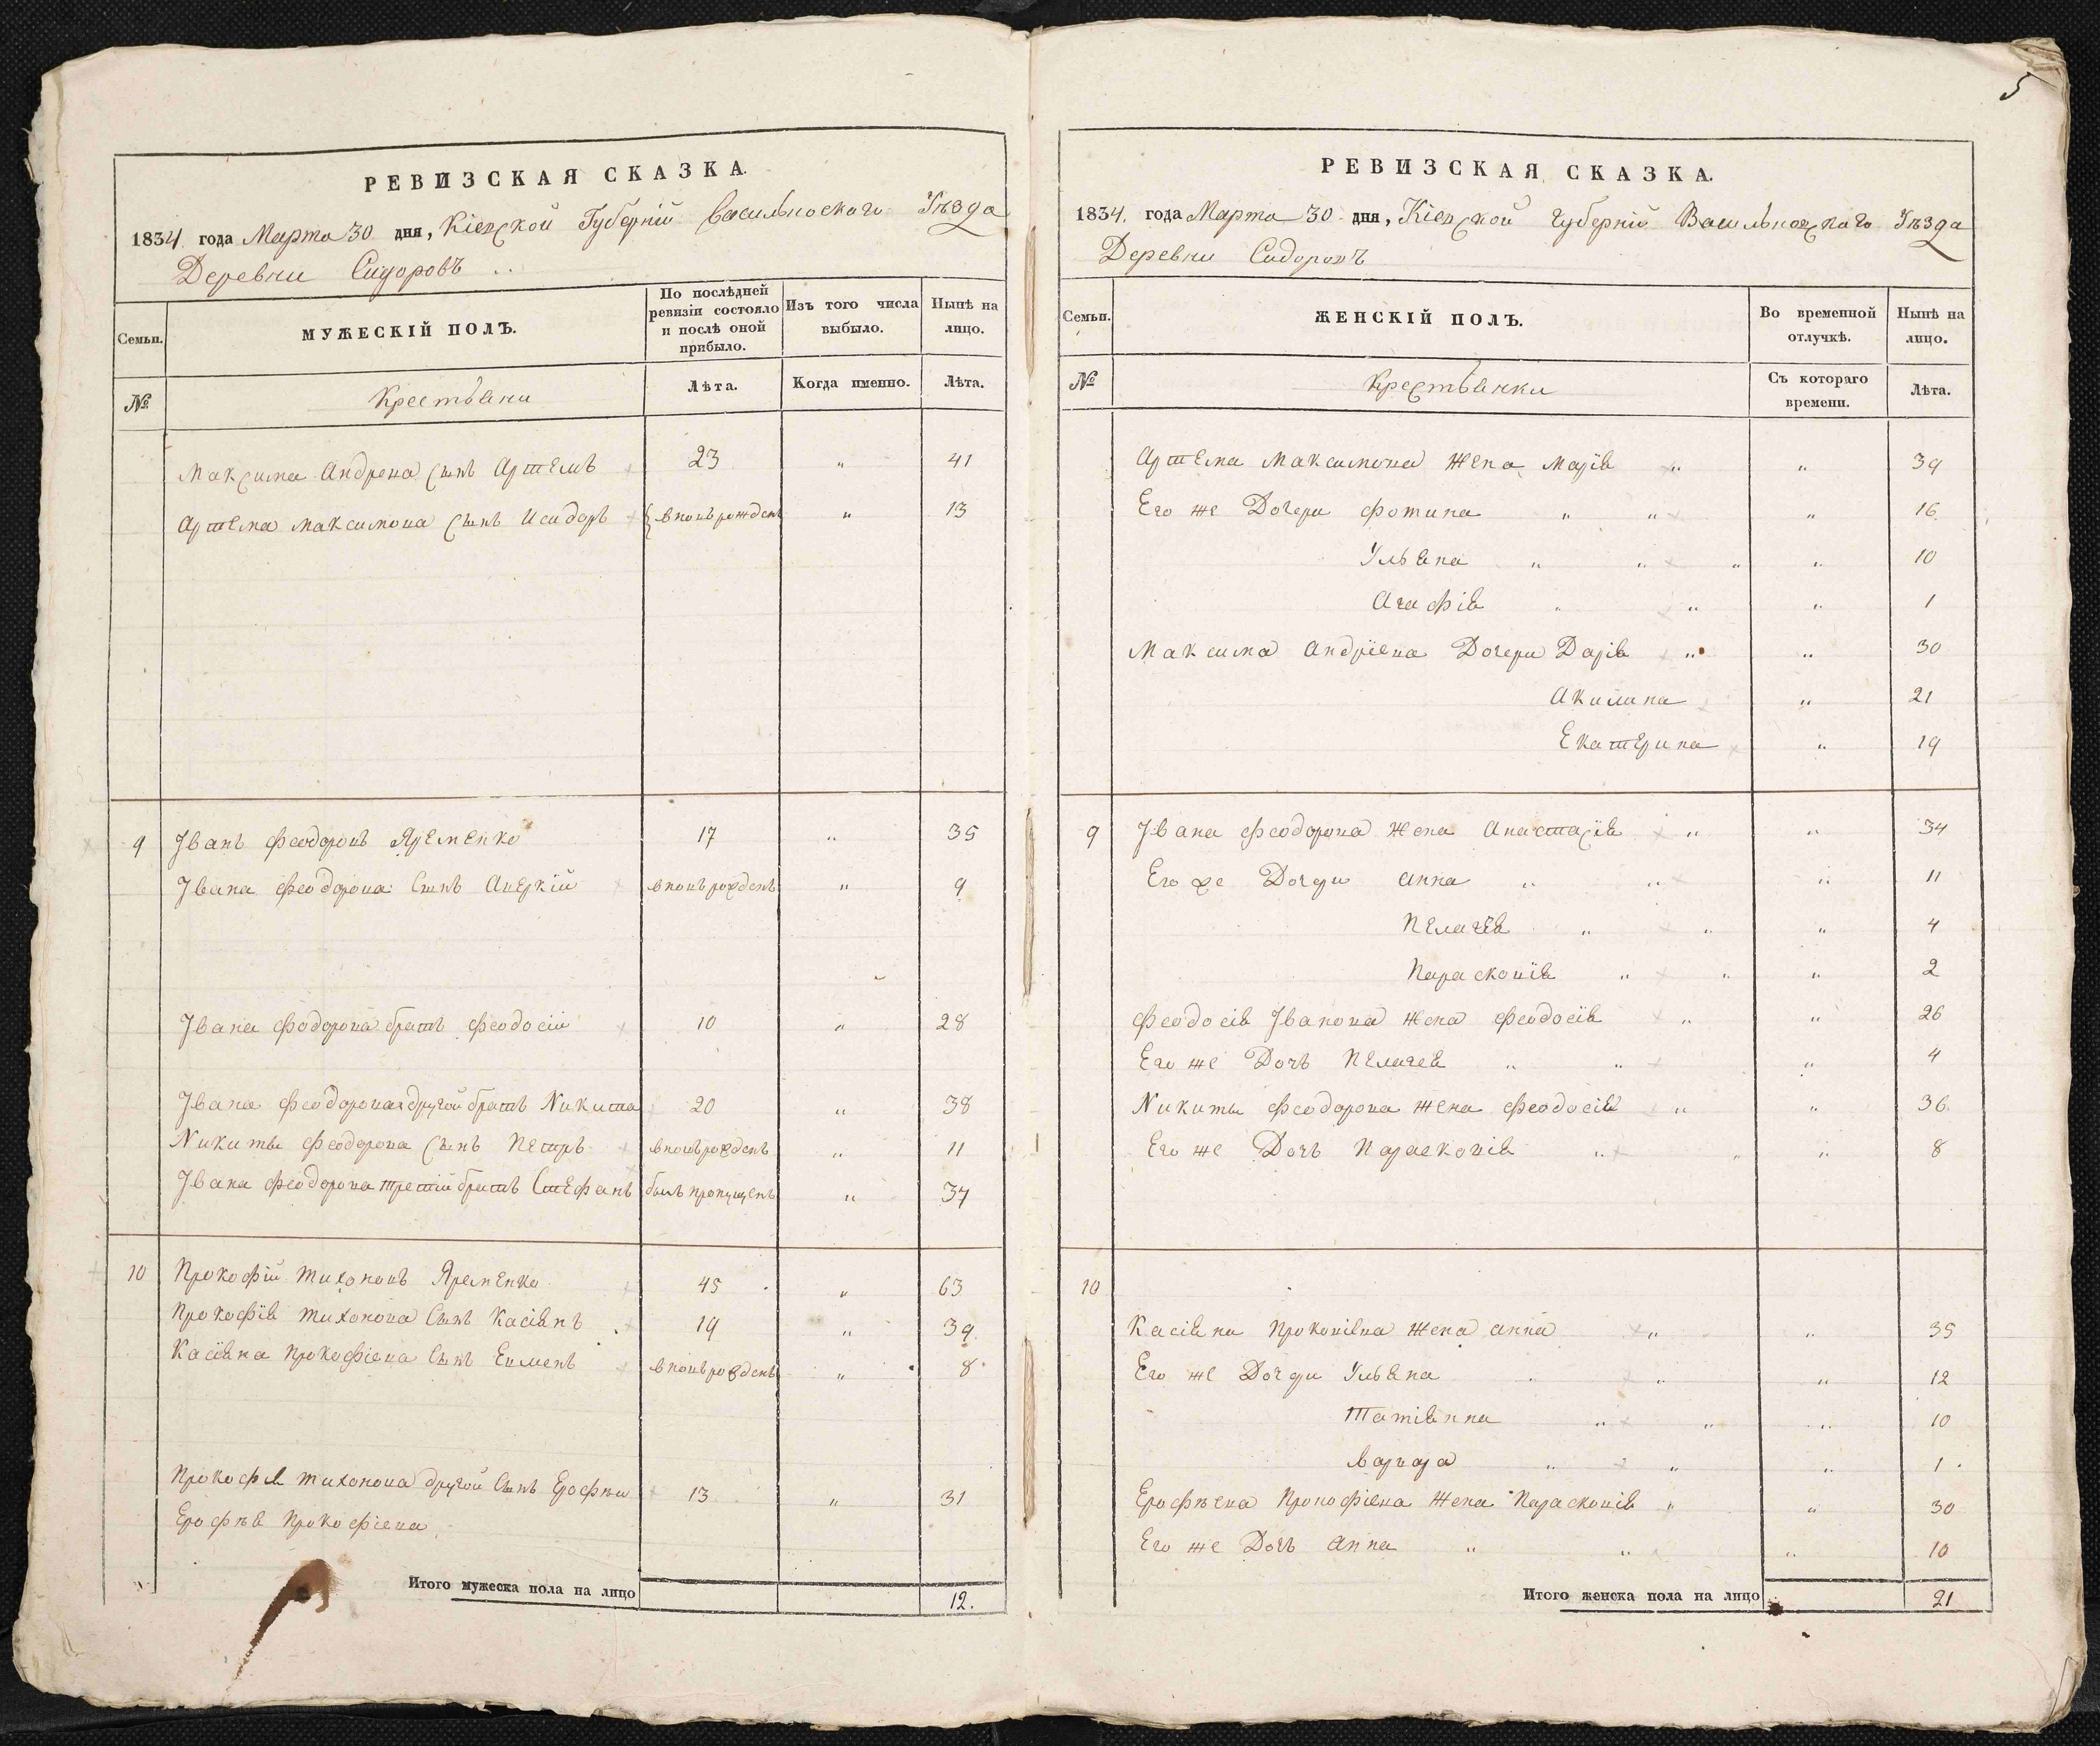 5
РЕВИЗСКАЯ СКАЗКА.
1834 года Марта 30 дня, Кіевской Губерній Васильковского Уѣзда
Деревни Сидоровъ
Семьи.
МУЖЕСКІЙ ПОЛЪ.
По послѣдней ревизіи состояло и послѣ оной прибыло.
Изъ того числа выбыло.
Нынѣ на лицо.
№
Крестьяни
Лѣта.
Когда именно.
Лѣта.
Максима Андреева сынъ Артемъ 23 " 41
Артема Максимова сынъ Исидоръ вновьрожденъ " 13
9 Іванъ Феодоровъ Яременко 17 " 35
Івана Феодорова Сынъ Аверкій вновьрожденъ " 9
Івана Фодорова братъ Феодосій 10 " 28
Івана Феодорова другой братъ Никита 20 " 38
Никиты Феодорова Сынъ Петръ вновьрожденъ " 11
Івана Феодорова третій братъ Стефанъ былъ пропущенъ " 37
10 Прокофій Тихоновъ Яременко 45 " 63
Прокофія Тихонова Сынъ Касіянъ 19 " 39
Касіяна Прокофіева Сынъ Евменъ вновьрожденъ " 8
Прокофія Тихонова другой Сынъ Ерофѣй 13 " 31
Ерофѣя Прокофіева
Итого мужеска пола на лицо 12.
РЕВИЗСКАЯ СКАЗКА.
1834. года Марта 30 дня, Кіевской Губерній Васильковскаго Уѣзда
Деревни Сидоровъ
Семьи.
ЖЕНСКІЙ ПОЛЪ.
Во временной отлучкѣ.
Нынѣ на лицо.
№
Крестьянки
Съ котораго времени.
Лѣта.
Артема Максимова Жена Марія " " 39
Его же Дочери Фотина " " " 16
Ульяна " " " " 10
Агафія " " " 1
Максима Андріева Дочери Дарія " " 30
Акилина " 21
Екатерина " 19
9 Івана Феодорова Жена Анастасія " " 34
Его же Дочери Анна " " " 11
Пелагея " " " 4
Парасковія " " " 2
Феодосія Іванова Жена Феодосія " " 26
Его же Дочь Пелагея " " " 4
Никиты Феодорова Жена Феодосія " " 36
Его же Дочь Парасковія " " " 8
10
Касіяна Прокопіева Жена Анна " " 35
Его же Дочери Ульяна " " " 12
Татіянна " " " 10
Варвара " " " 1
Ерофѣева Прокофіева Жена Парасковія " " 30
Его же Дочь Анна " " " 10
Итого женска пола на лицо 21